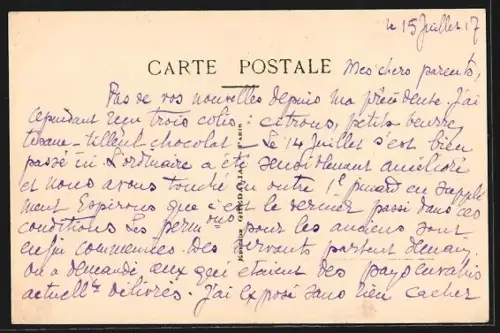 le 15 Juillet 17
CARTE POSTALE
Mes chers parents,
Pas de vos nouvelles depuis ma précédente. J'ai
cependant reçu trois colis : citrons, petits beurre,
tisane - tilleul - chocolat - Le 14 Juillet s'est bien
passé ici L'ordinaire a été sensiblement amélioré
et nous avons touché en outre 1 l. pinard en supplé
ment Espérons que c'est le dernier passé dans ces
conditions Les perm ons pour les anciens sont
enfin commencées. Des servants partent
On a demandé ceux qui étaient des pays envahis
actuell ts délivrés. J'ai exposé sans rien cacher